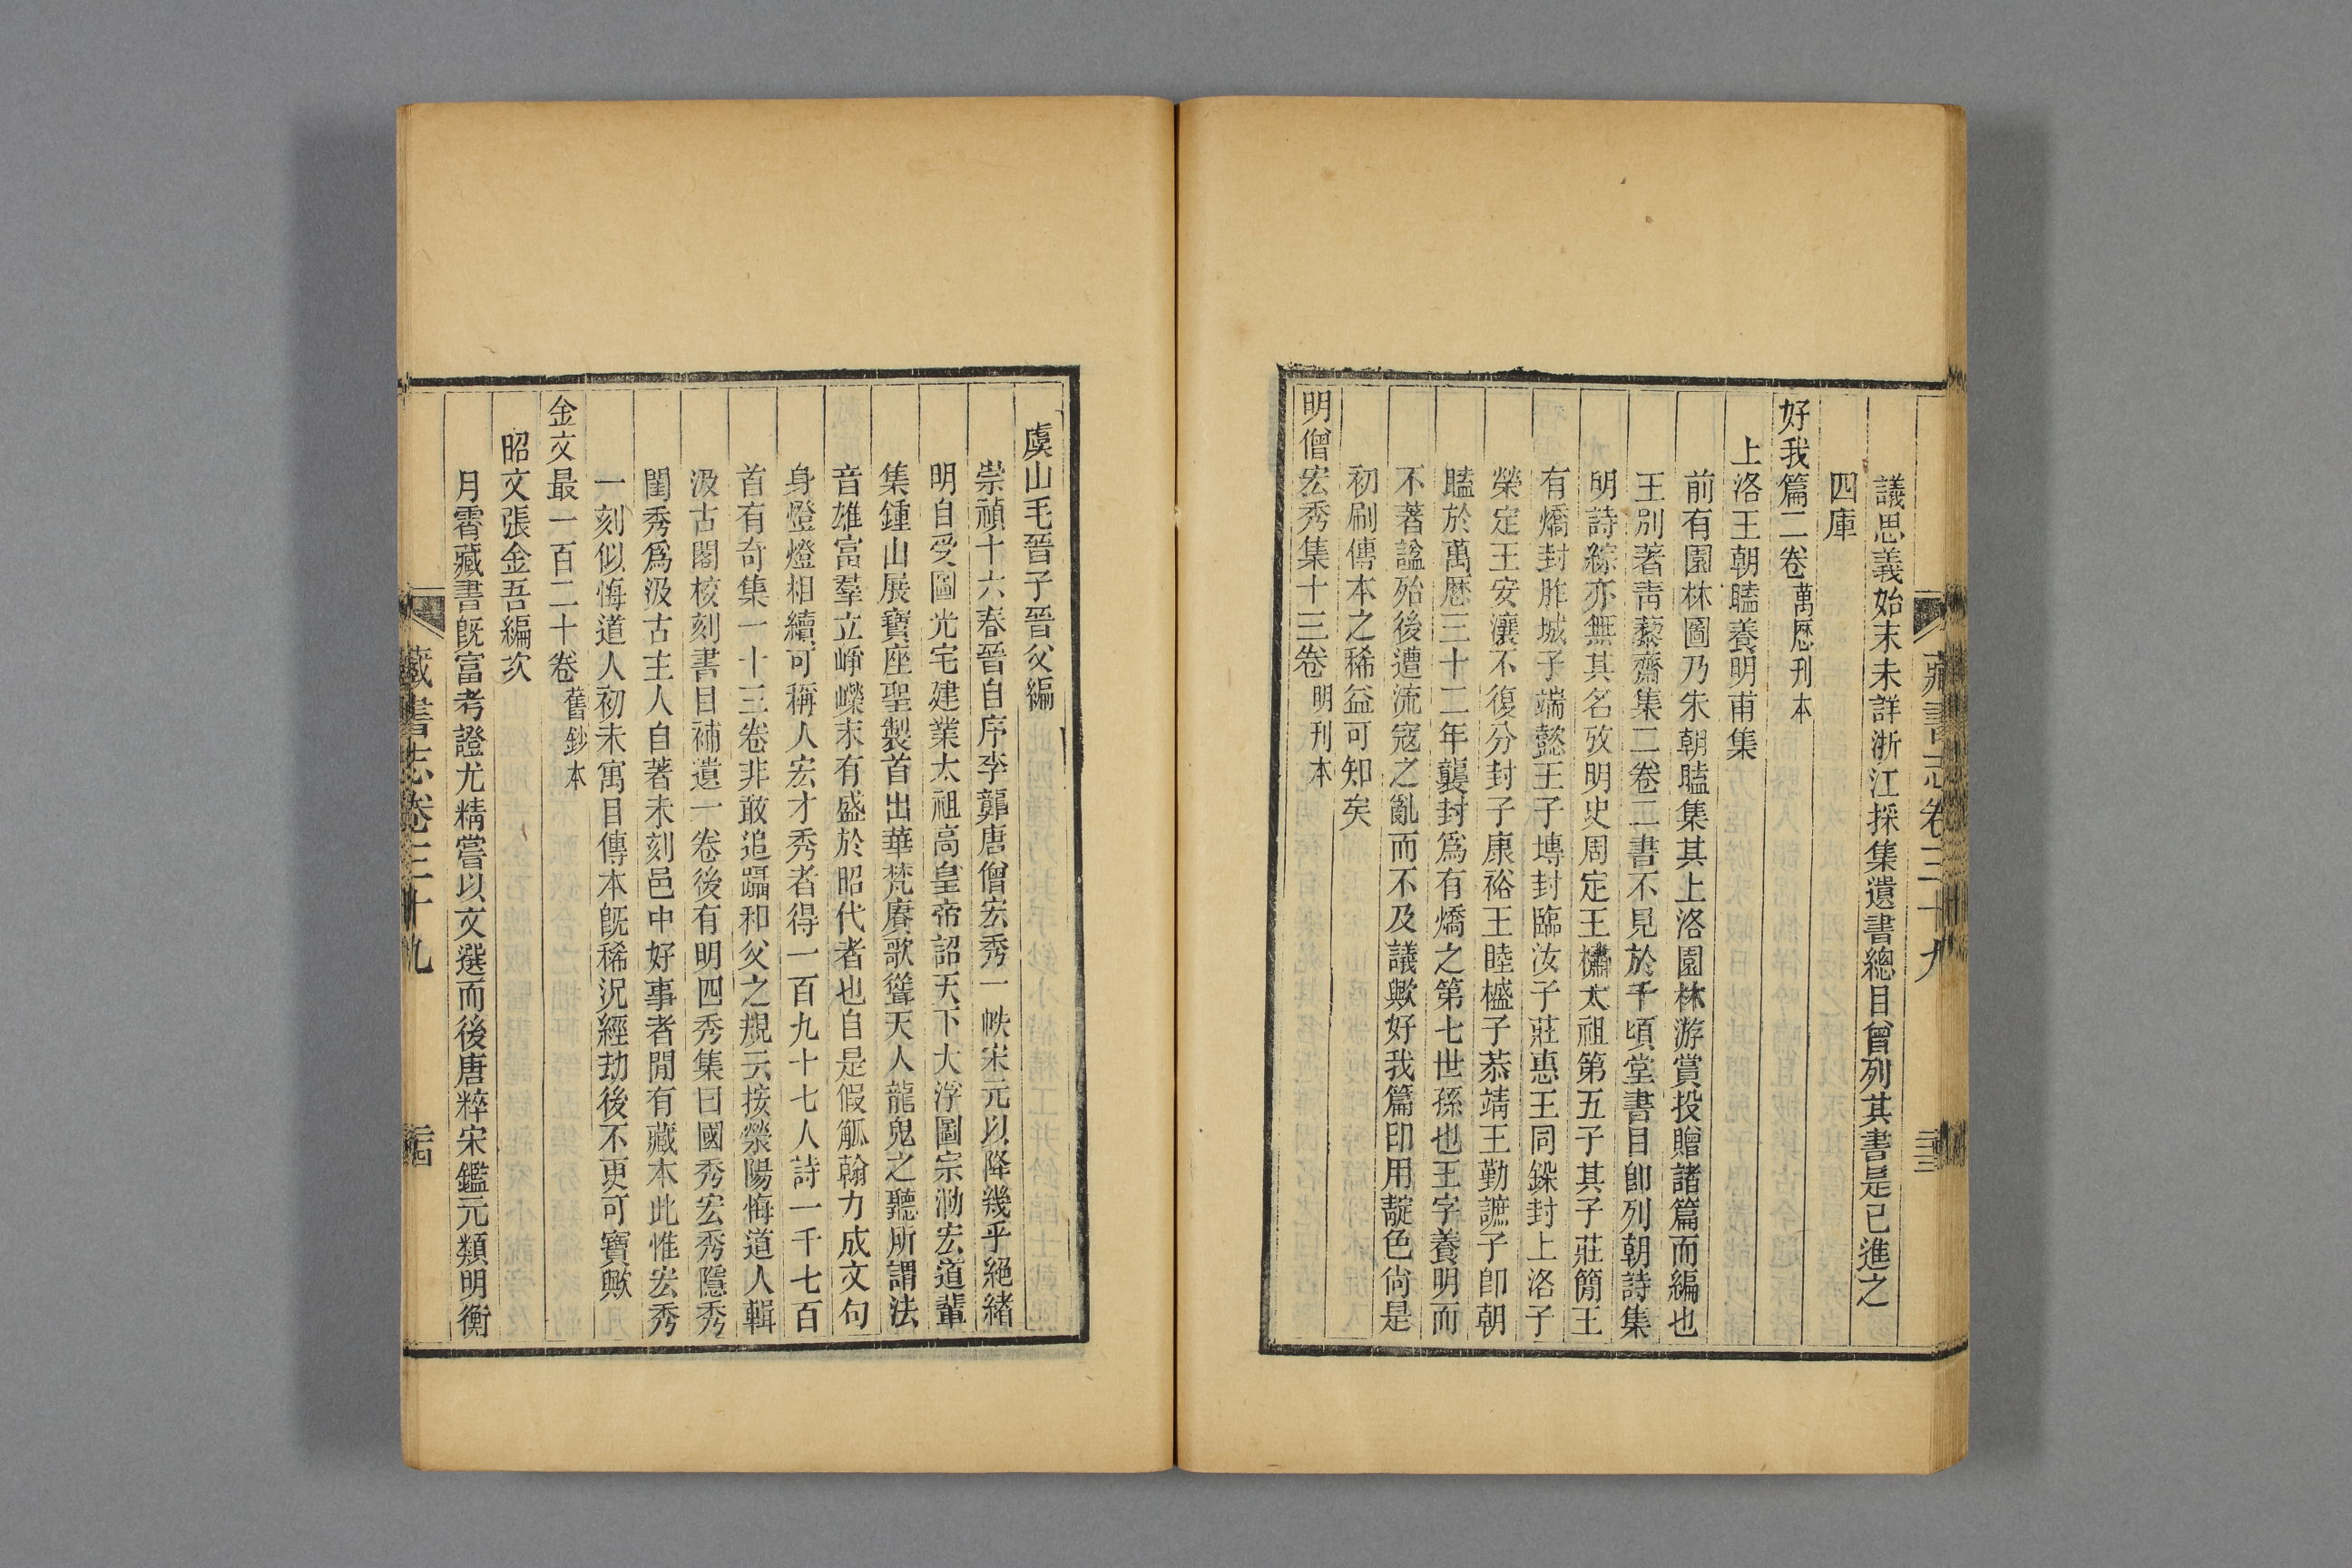 藏書志卷三十九
三十三
議思義始末未詳浙江採集遺書總目曾列其書是已進之
四庫
好我篇二卷萬歷刊本
上洛王朝𥉸養明甫集
前有園林圖乃朱朝𥉸集其上洛園林游賞投贈諸篇而編也
王別著靑藜齋集二卷二書不見於千頃堂書目卽列朝詩集
明詩綜亦無其名攷明史周定王橚太祖第五子其子莊簡王
有爝封胙城子端懿王子塼封臨汝子莊惠王同鏤封上洛子
榮定王安瀼不復分封子康裕王睦楹子恭靖王勤謶子卽朝
𥉸於萬歷三十二年襲封爲有爝之第七世孫也王字養明而
不著諡殆後遭流寇之亂而不及議歟好我篇印用靛色尙是
初刷傳本之稀益可知矣
明僧宏秀集十三卷明刊本
虞山毛晉子晉父編
崇禎十六春晉自序李龏唐僧宏秀一帙宋元以降幾乎絕緖
明自受圖光宅建業太祖高皇帝詔天下大浮圖宗泐宏道輩
集鍾山展寶座聖製首出華梵賡歌聳天人龍鬼之聽所謂法
音雄富羣立崢嶸末有盛於昭代者也自是假觚翰力成文句
身燈燈相續可稱人宏才秀者得一百九十七人詩一千七百
首有奇集一十三卷非敢追躡和父之規云按滎陽悔道人輯
汲古閣校刻書目補遺一卷後有明四秀集曰國秀宏秀隱秀
閨秀爲汲古主人自著未刻邑中好事者閒有藏本此惟宏秀
一刻似悔道人初未寓目傳本旣稀況經劫後不更可寶歟
金文最一百二十卷舊鈔本
昭文張金吾編次
月霄藏書旣富考證尤精嘗以文選而後唐粹宋鑑元類明衡
藏書志卷三十九
三十四